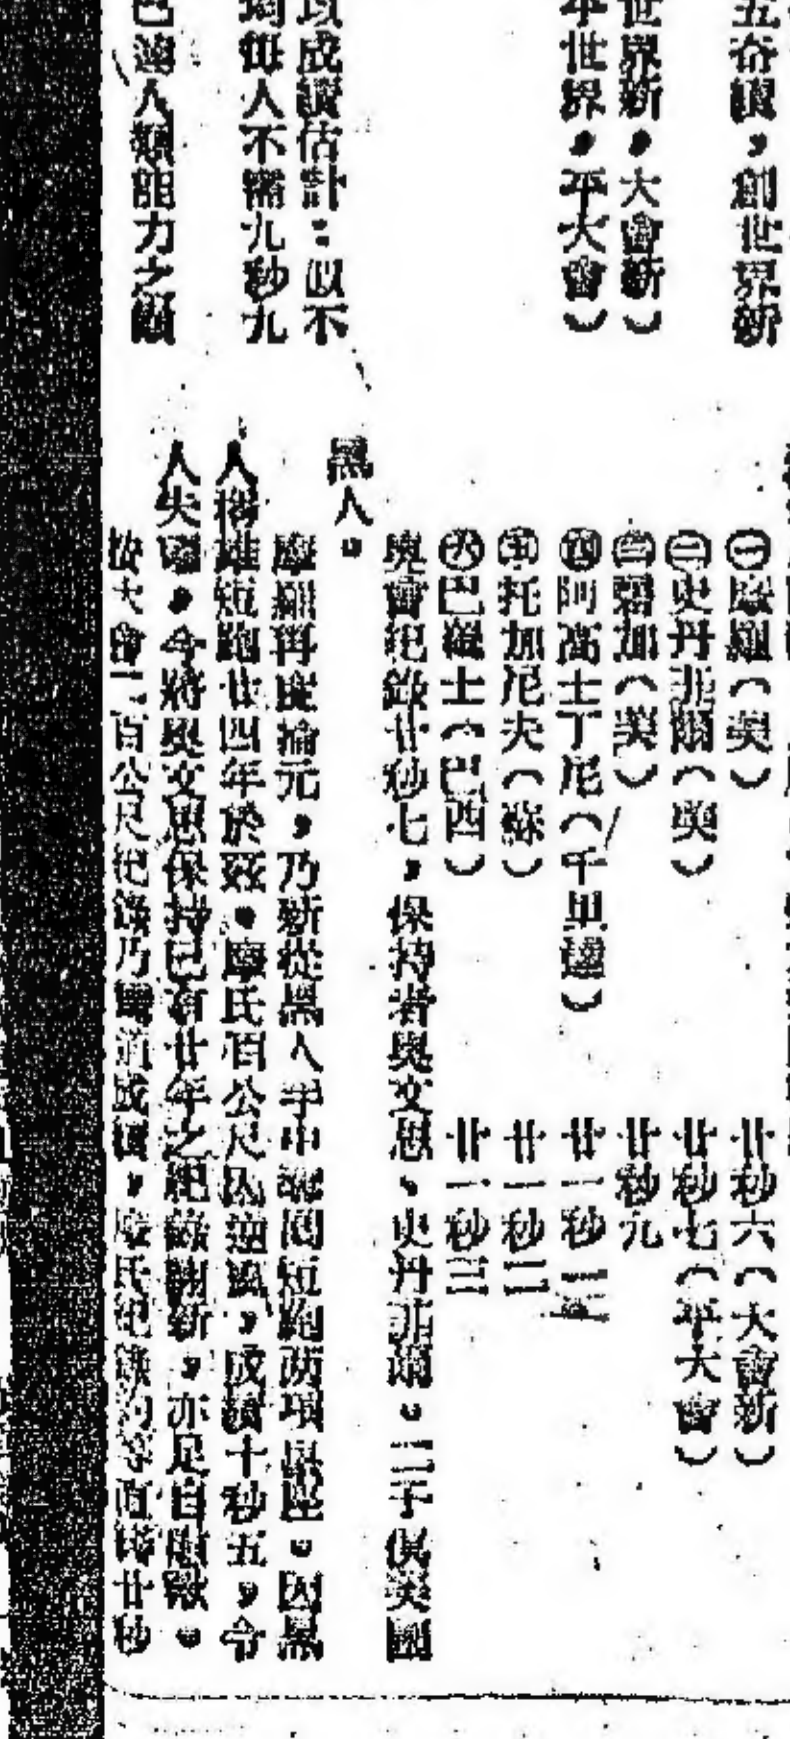 五奋讀，創世界新
世界新，大會新）
平世界，平大會）
以成績估計：似不
均每人不需九秒九
已達人類能力之顛
㊀摩羅（美）　廿秒六（大會新）
㊁史丹菲爾（美）　廿秒七（平大會）
㊂碧加（美）　廿秒九
㊃阿高士丁尼（千里達）　廿一秒一
㊄托加尼夫（蘇）　廿一秒二
㊅巴羅士（巴西）　廿一秒三
奧會紀錄廿秒七，保持者奧文思、史丹菲爾。二子俱美國
黑人。
摩羅再度掄元，乃新從黑人手中奪囘短跑两項寶座。因黑
人稱雄短跑廿四年於茲。摩氏百公尺因逆風，成績十秒五，令
人失望，今將奧文思保持已有廿年之紀錄刷新，亦足自慰歟。
按大會二百公尺紀錄乃彎道成績，摩氏紀錄約等直路廿秒